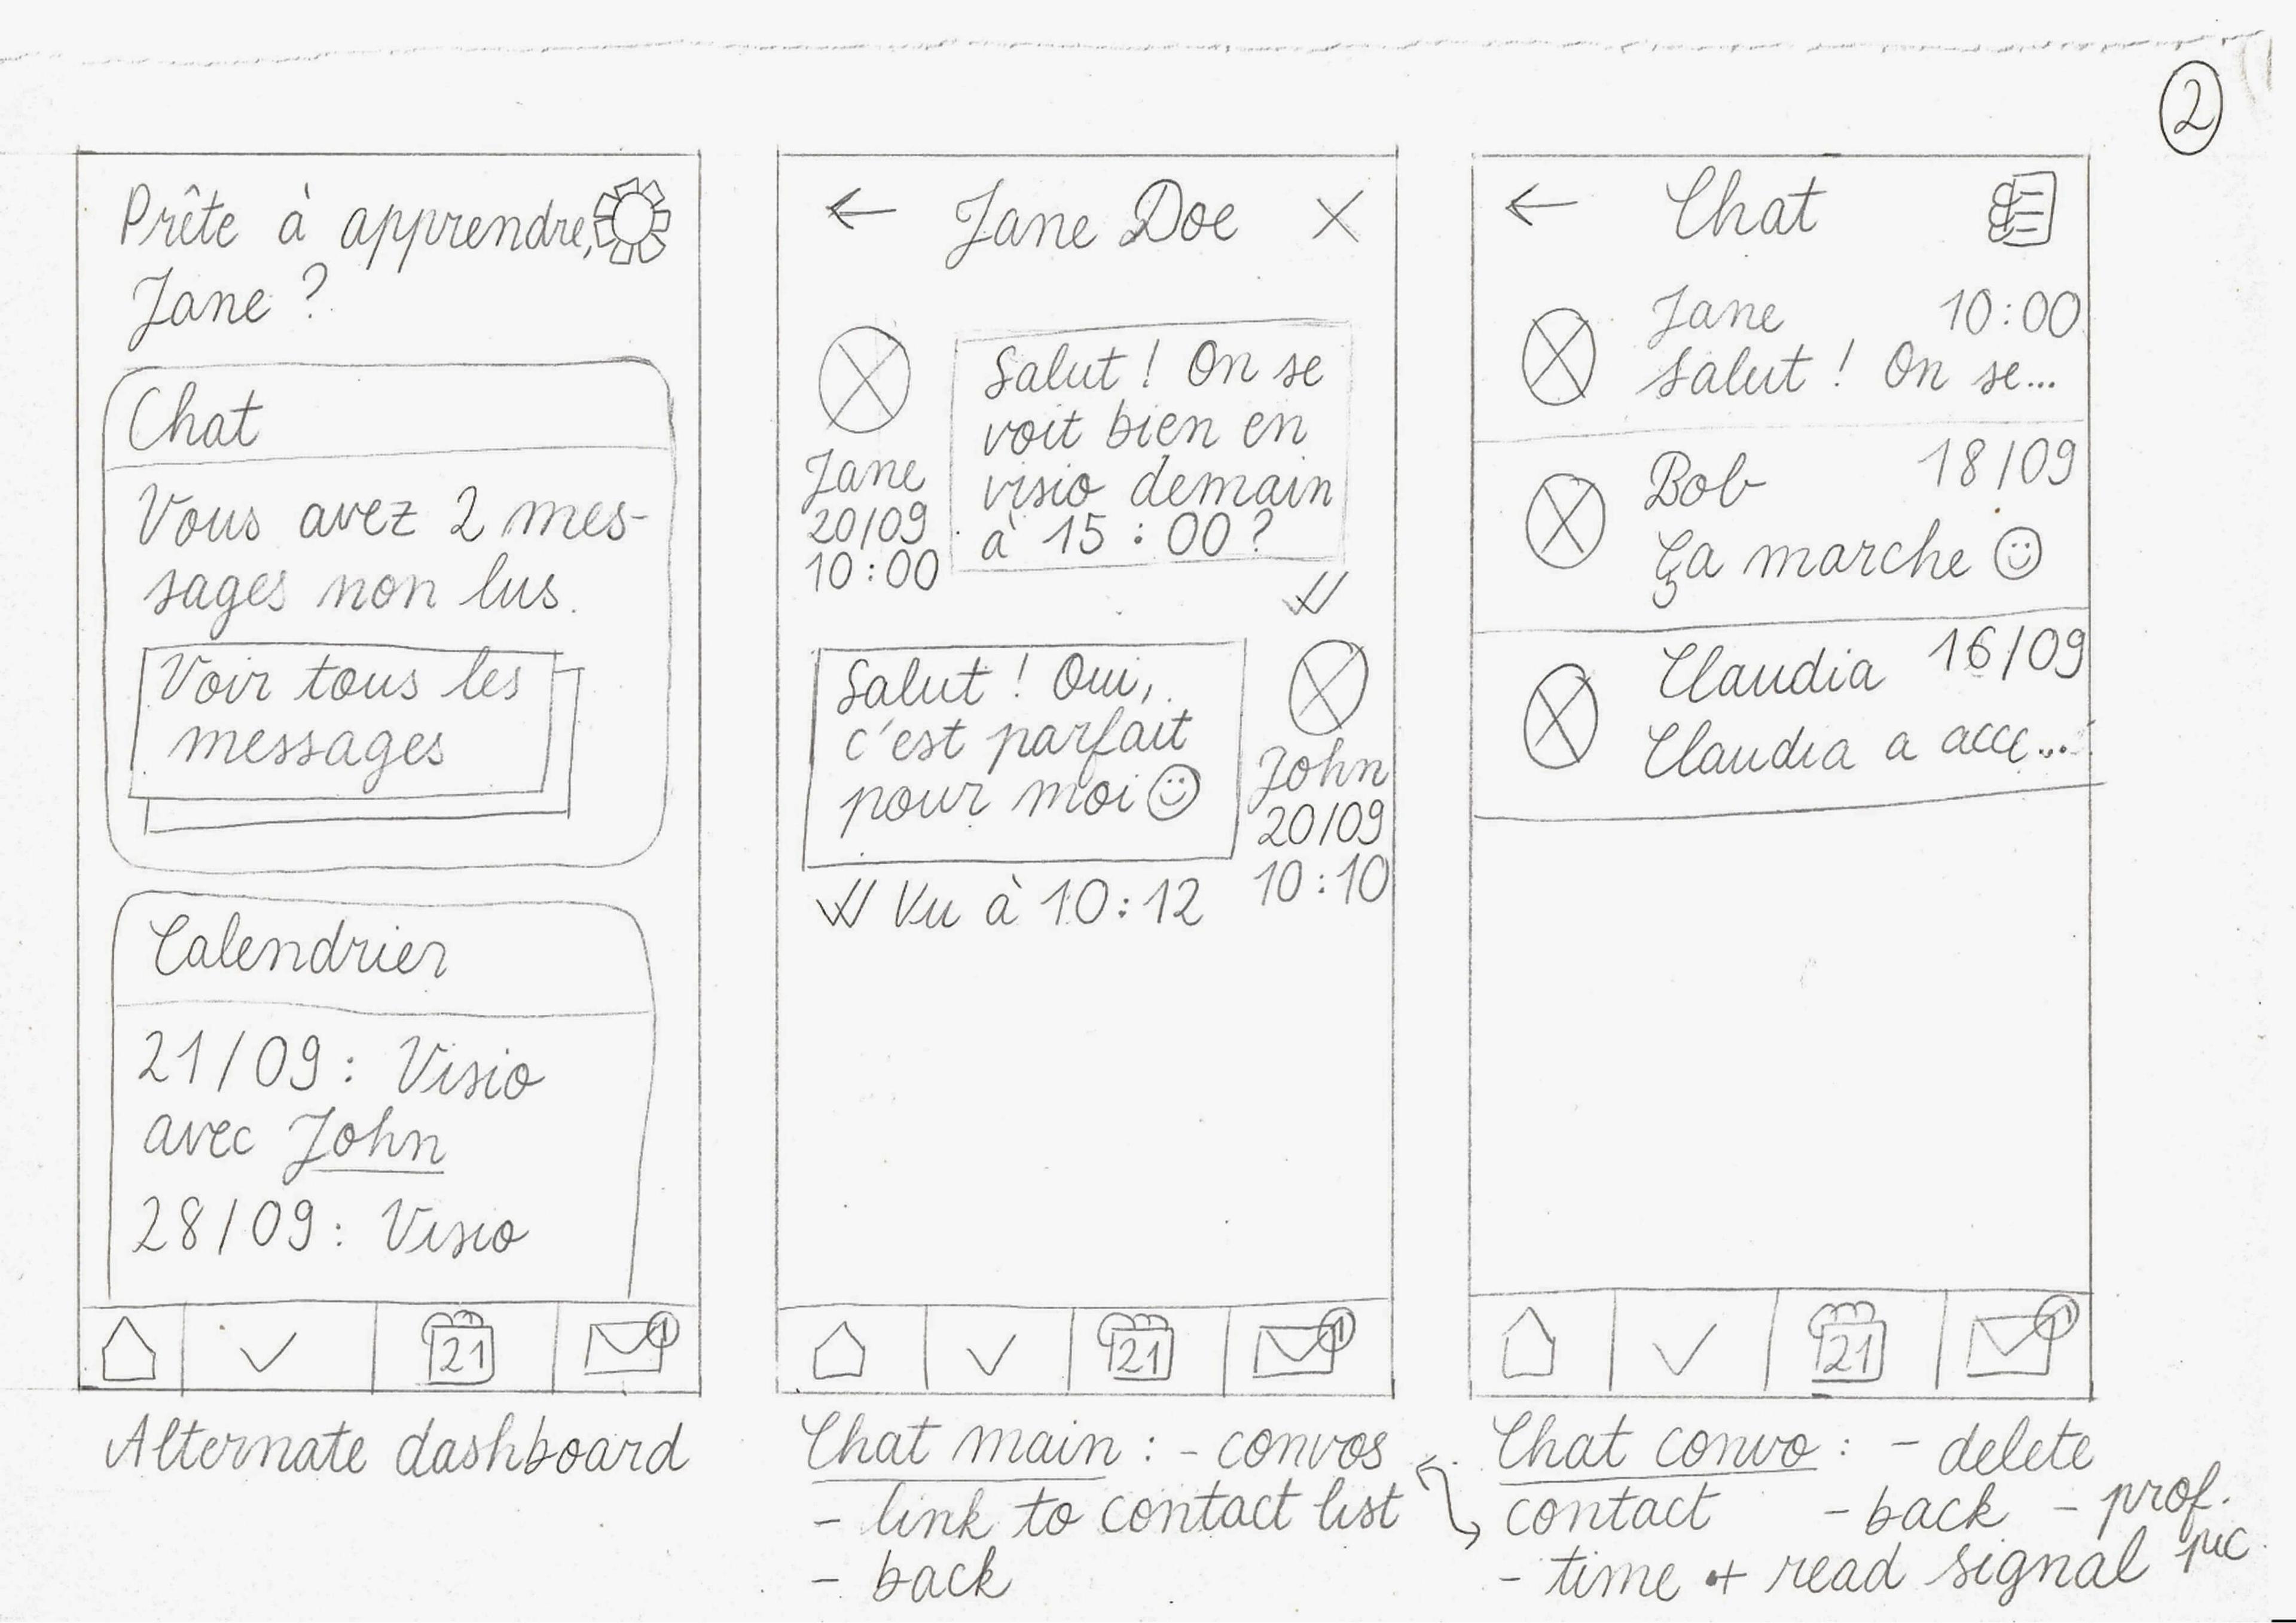 2
Prête à apprendre,
Jane ?
Chat
Vous avez 2 mes-
sages non lus.
Voir tous les
messages
Calendrier
21/09 : Visio
avec John
28/09 : Visio
21
1
Alternate dashboard
Jane Doe
Jane
20/09
10:00
Salut ! On se
voit bien en
visio demain
à 15 : 00 ?
Salut ! Oui,
c'est parfait
pour moi
John
20/09
10:10
Vu à 10:12
21
1
Chat main : - convos
- link to contact list
- back
Chat
Jane 10:00
Salut ! On se...
Bob 18/09
Ça marche
Claudia 16/09
Claudia a acc...
21
1
Chat convo : - delete
contact - back - prof.
pic
- time + read signal